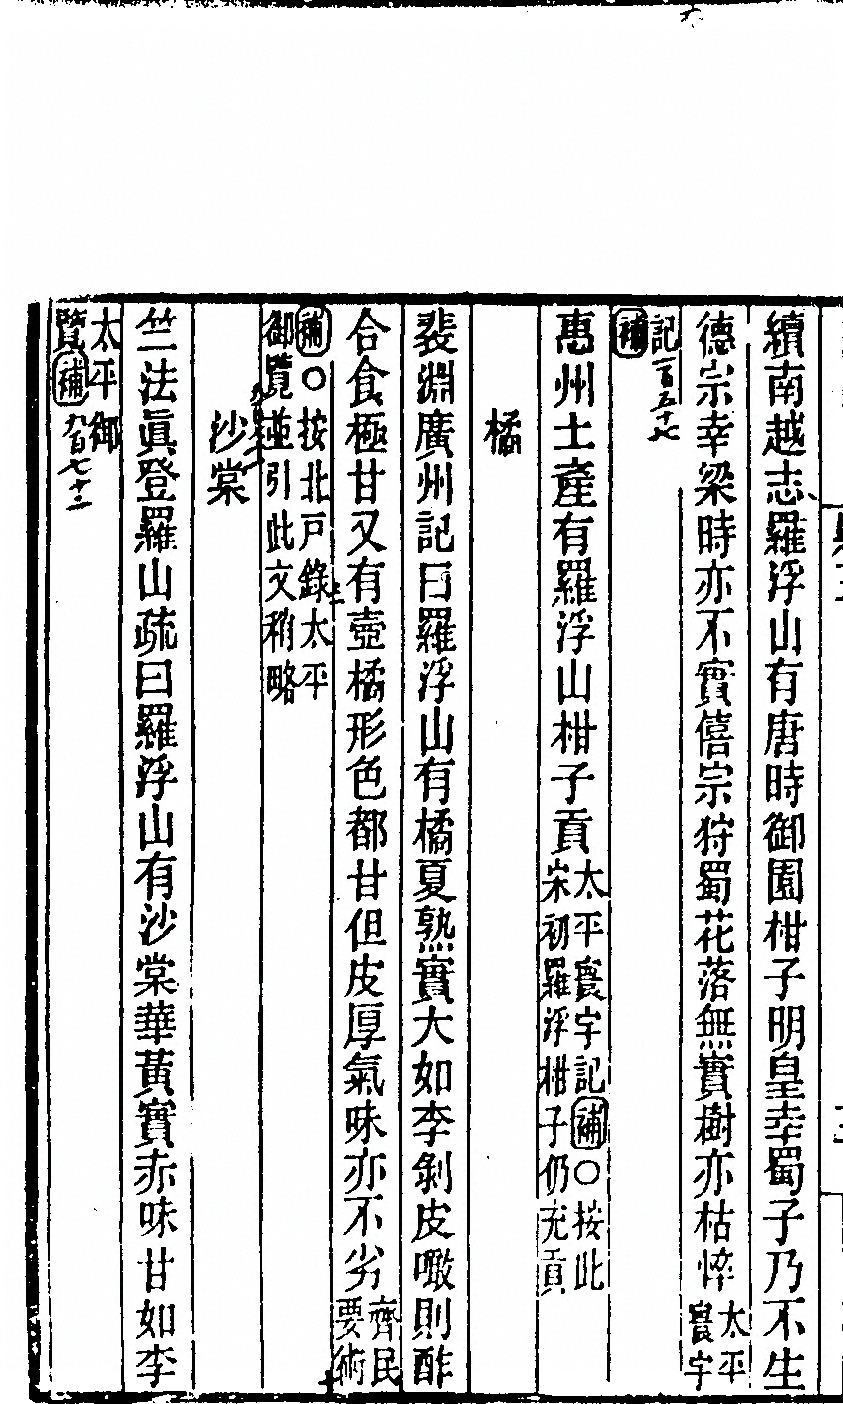 續南越志羅浮山有唐時御園柑子明皇幸蜀子乃不生
德宗幸梁時亦不實僖宗狩蜀花落無實樹亦枯悴太平寰宇
記一百五十七補
惠州土產有羅浮山柑子貢太平寰宇記補○按此宋初羅浮柑子仍充貢
橘
裴淵廣州記曰羅浮山有橘夏熟實大如李剝皮噉則酢
合食極甘又有壺橘形色都甘但皮厚氣味亦不劣齊民要術
補○按北戸錄太平御覽並引此文稍略
沙棠
竺法眞登羅山疏曰羅浮山有沙棠華黃實赤味甘如李
太平御覽補九百七十三